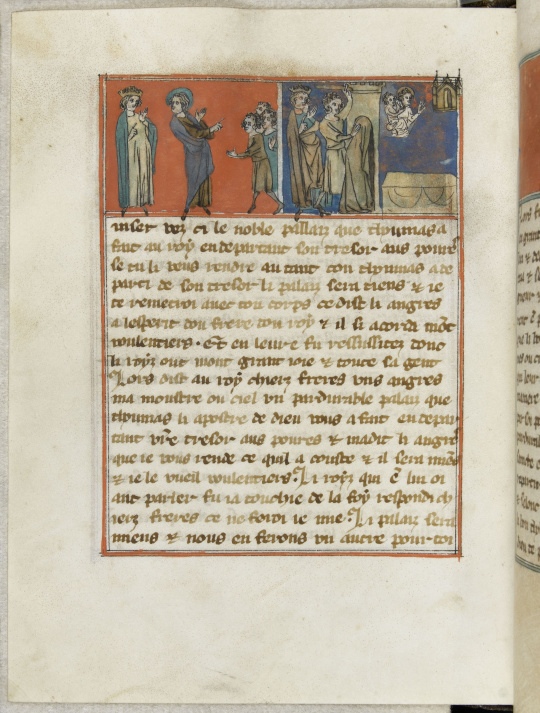 inser vez ci le noble pallaiz que thoumas a
fait au roy en departant son tresor aus poures
se tu li veus rendre autant con thoumas a de
parti de son tresor li palaiz sera tiens & ie
te remetroi avec ton corps ce dist li angres
a lesperit dou frere dou roy & il si acorda mot
voulentiers. Et en leure fu ressussitez donc
li royz out mout grant ioie & toute sa gent
Lors dist au roy chierz freres uns angres
ma moustre ou ciel un pardurable palaiz que
thoumas li apostre de dieu vous a fait en depar
tant vre tresor aus poures & ma dit li angre
que ie vous rende ce quil a couste & il sera miens
& ie le vueil voulentiers. Li royz qui
ant parler fu ia touchie de la foy respondi ch
ierz freres ce ne feroi ie mie. Li palaiz sera
miens & nous en ferons un autre pour toi